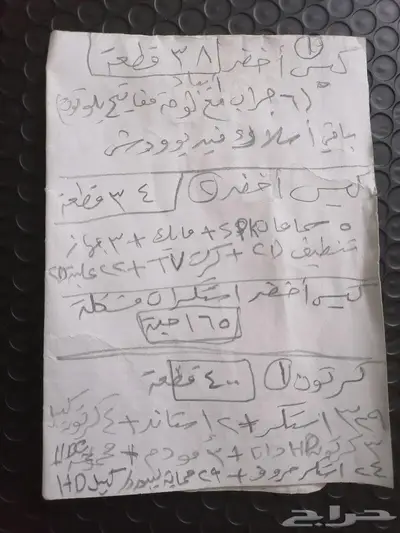 ① كيس أخضر ٣٨ قطعة
آيباد
(٦ جراب مع لوحة مفاتيح بلوتوث)
باقي أسلاك فيديو ودش
كيس أخضر ② ٣٤ قطعة
٥ سماعات SPKO + مايك + ٣ جهاز
تنظيف CD + كرت TV + ٢٢ علبة CD
كيس أخضر استكرات مشكلة
١٦٥ حبة
كرتون ① ٤٠٠ قطعة
٣٢٩ استكر + ٢ استاند + ٤ كرتون كيبل
٣ كرتون HD + ٣ مودم +
٢٤ استكر حروف + كيبل HD
حراج